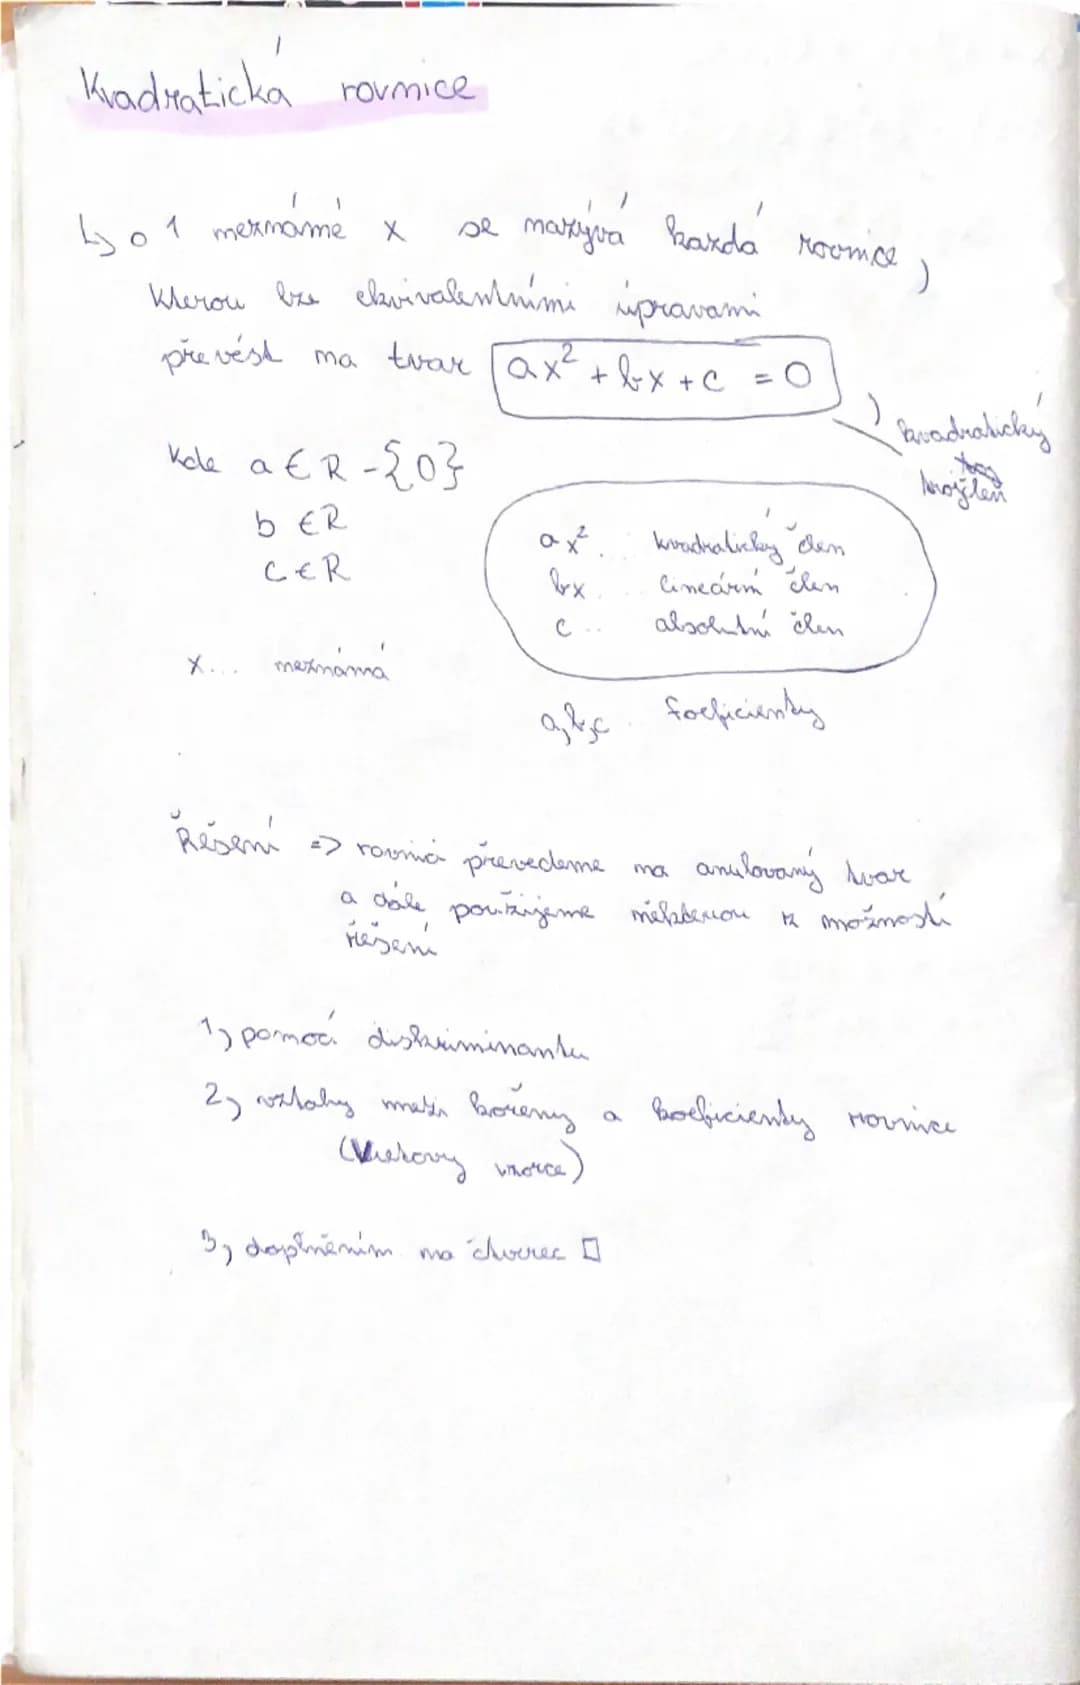 Kvadratická rovnice
↳ o 1 neznámé x se nazývá každá rovnice,
kterou lze ekvivalentními úpravami
převést na tvar ax² + bx + c = 0
kvadratický
trojčlen
Kde a ∈ R - {0}
b ∈ R
c ∈ R
ax² .. kvadratický člen
bx .. lineární člen
c .. absolutní člen
x... neznámá
a,b,c . koeficienty
Řešení => rovnici převedeme na anulovaný tvar
a dále použijeme některou z možností
řešení
1, pomocí diskriminantu
2, vztahy mezi kořeny a koeficienty rovnice
(Vietovy vzorce)
3, doplněním na čtverec □